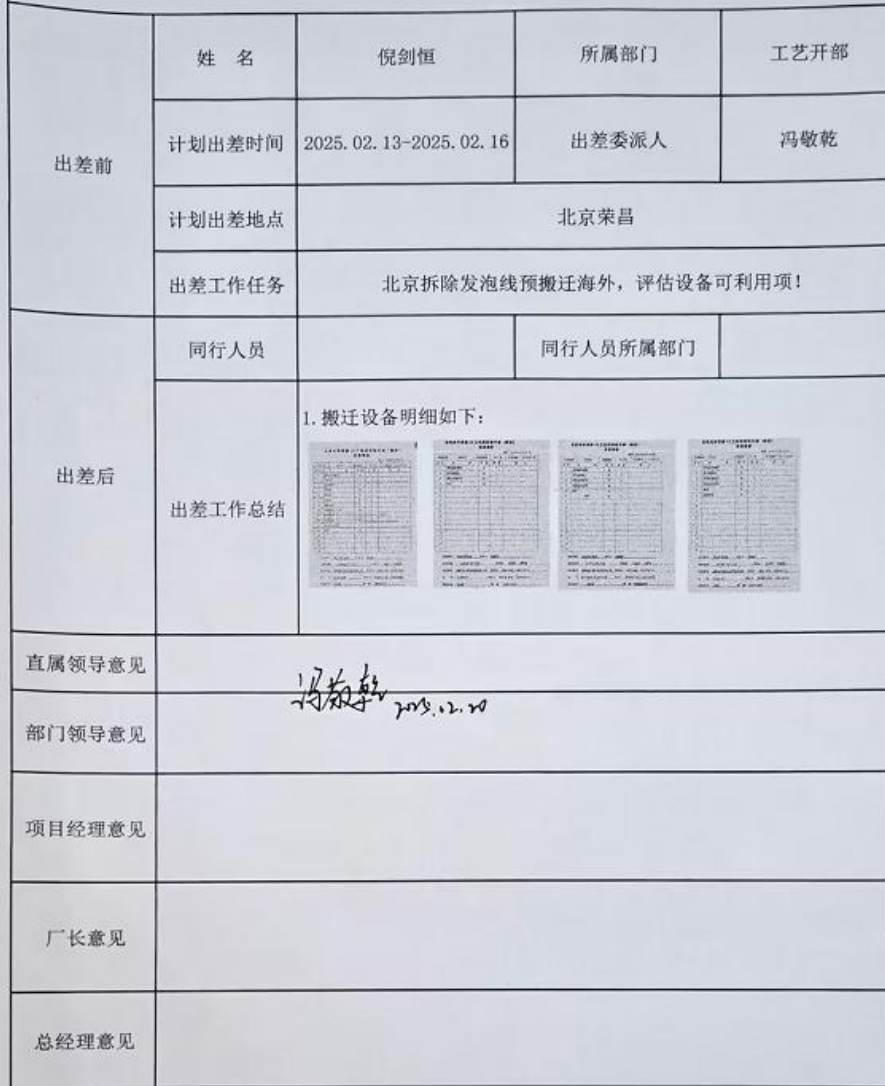 出差前
姓 名
倪剑恒
所属部门
工艺开部
计划出差时间
2025.02.13-2025.02.16
出差委派人
冯敬乾
计划出差地点
北京荣昌
出差工作任务
北京拆除发泡线预搬迁海外，评估设备可利用项！
出差后
同行人员
同行人员所属部门
出差工作总结
1.搬迁设备明细如下：
直属领导意见
冯敬乾
部门领导意见
项目经理意见
厂长意见
总经理意见